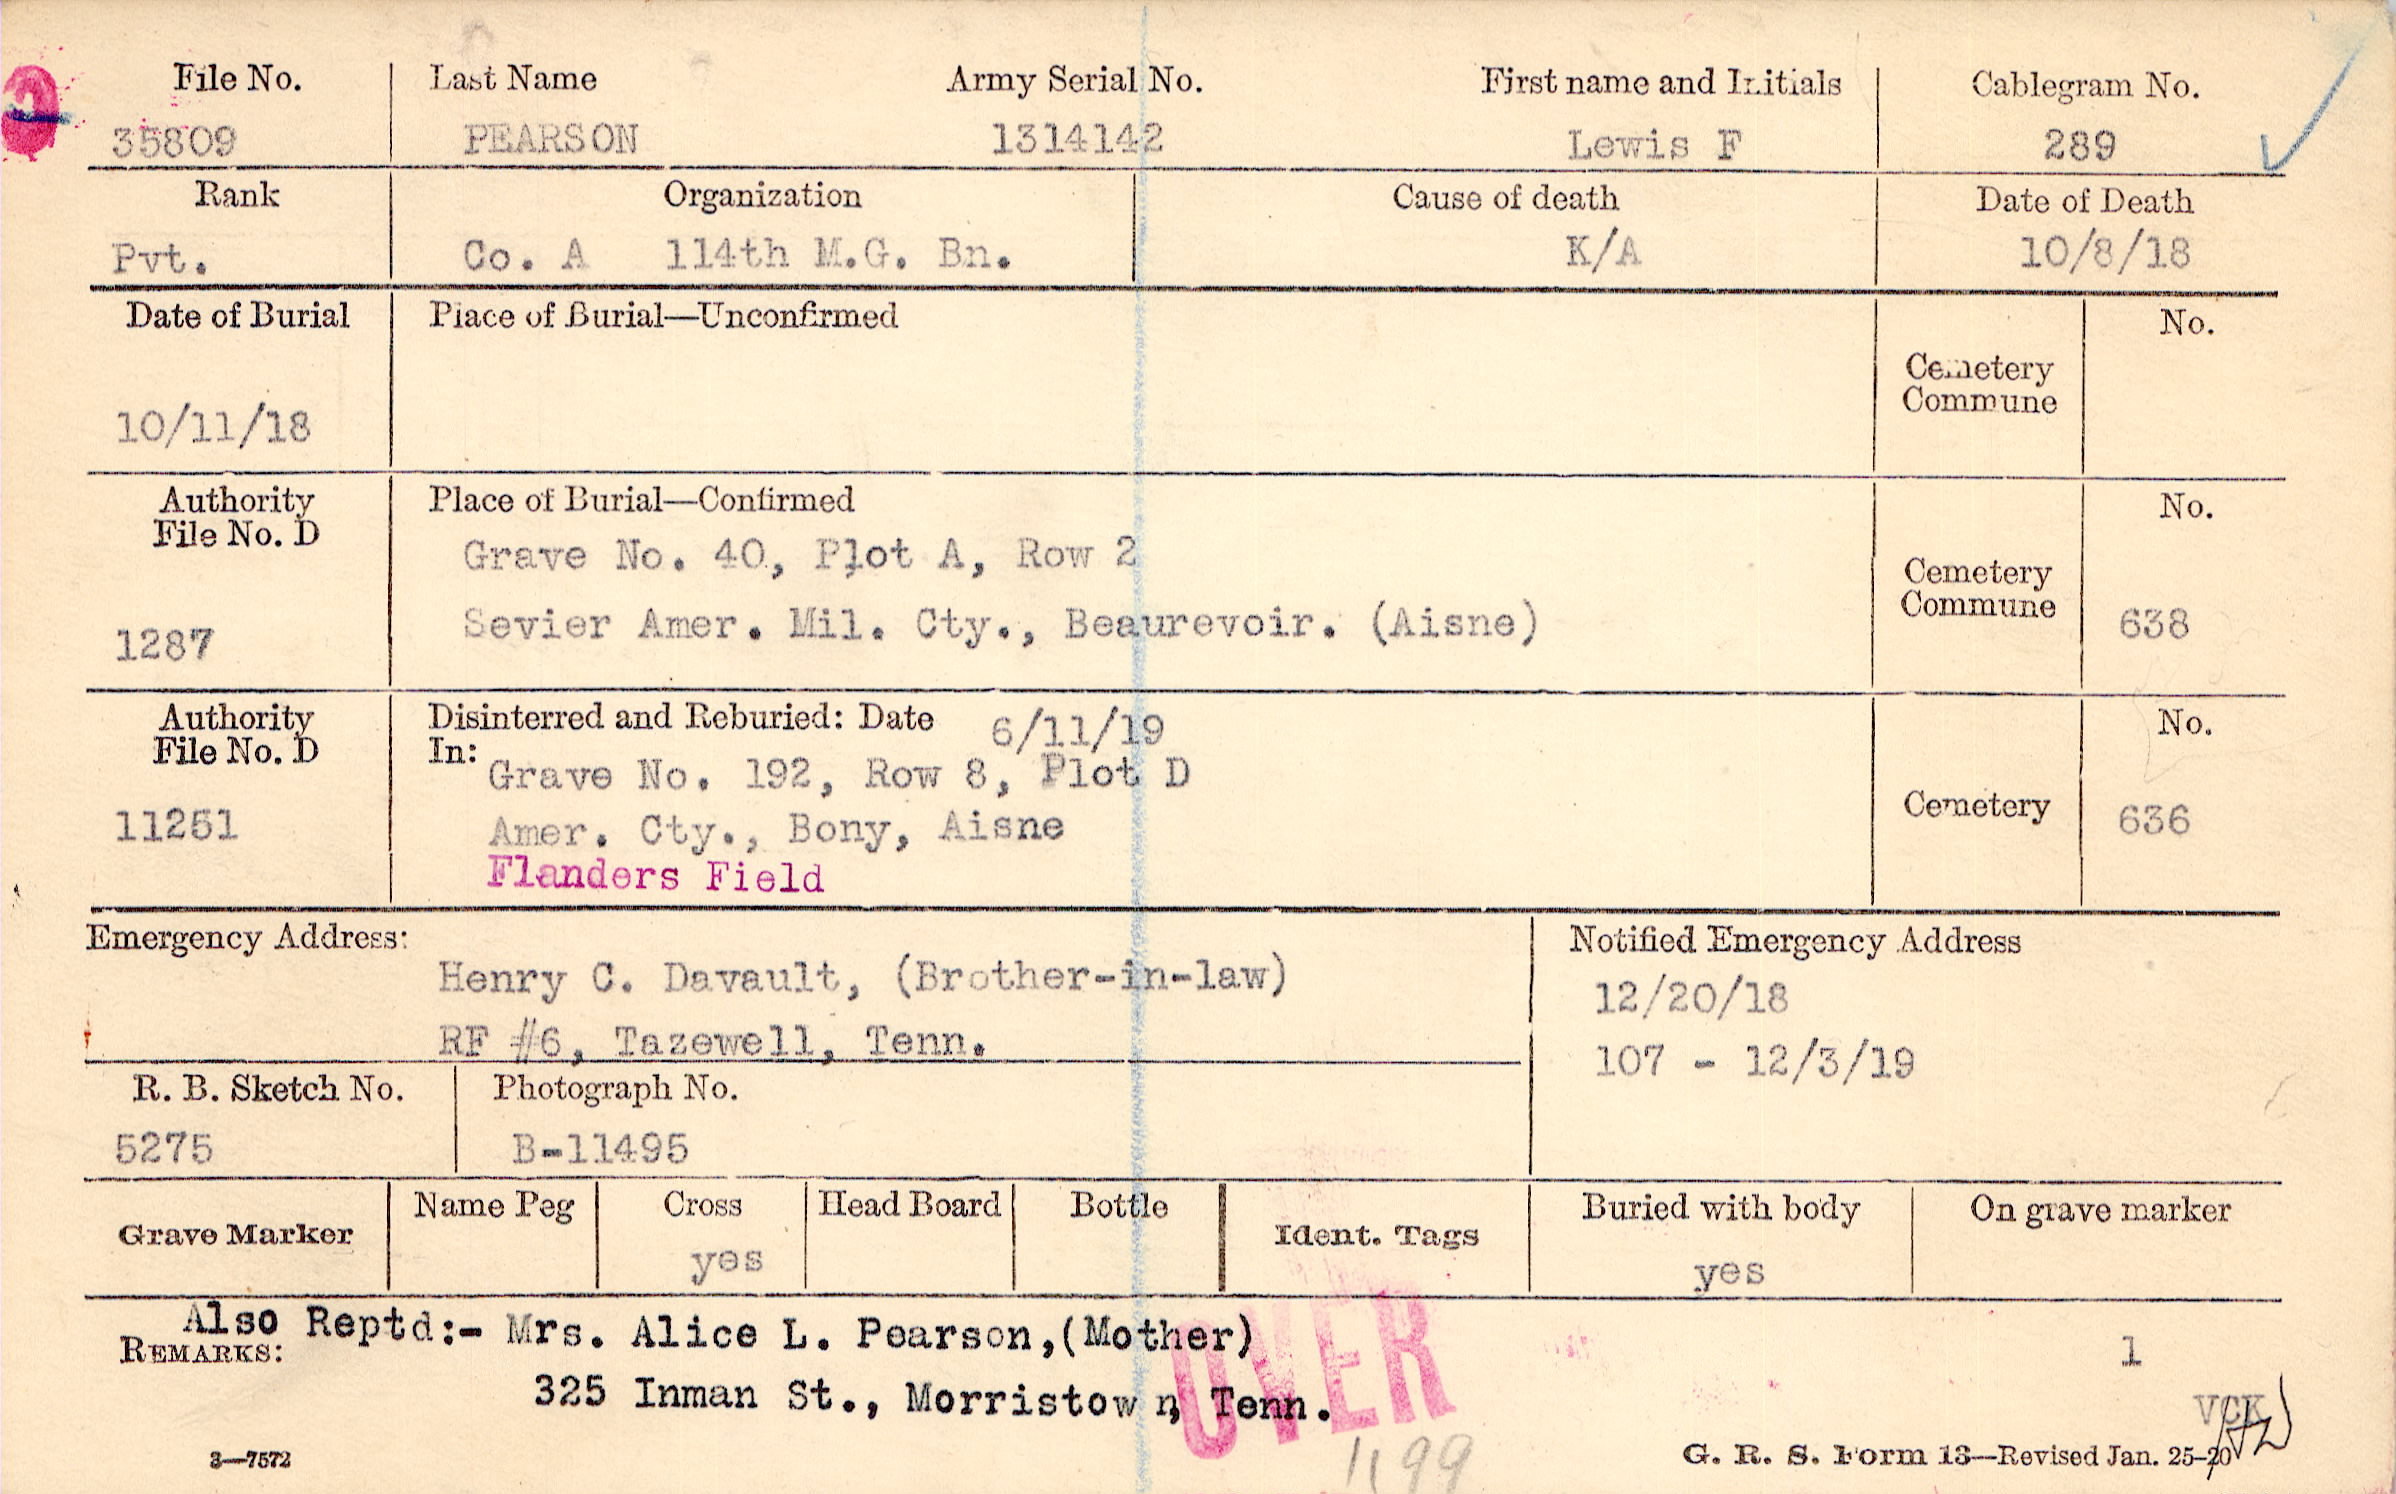 File No. Last Name Army Serial No. First name and Initials Cablegram No.
35809 PEARSON 1314142 Lewis F 289
Rank Organization Cause of death Date of Death
Pvt. Co. A 114th M.G. Bn. K/A 10/8/18
Date of Burial Place of Burial—Unconfirmed No.
Cemetery
Commune
10/11/18
Authority Place of Burial—Confirmed No.
File No. D
Grave No. 40, Plot A, Row 2
Cemetery
Commune
1287 Sevier Amer. Mil. Cty., Beaurevoir. (Aisne) 638
Authority Disinterred and Reburied: Date 6/11/19 No.
File No. D In:
Grave No. 192, Row 8, Plot D
11251 Amer. Cty., Bony, Aisne Cemetery 636
Flanders Field
Emergency Address: Notified Emergency Address
Henry C. Davault, (Brother-in-law) 12/20/18
RF #6, Tazewell, Tenn. 107 - 12/3/19
R. B. Sketch No. Photograph No.
5275 B-11495
Grave Marker Name Peg Cross Head Board Bottle Ident. Tags Buried with body On grave marker
yes yes
Also Reptd:- Mrs. Alice L. Pearson,(Mother) 1
REMARKS:
325 Inman St., Morristown, Tenn.
OVER
VCK
1199
3—7572 G. R. S. Form 13—Revised Jan. 25-20